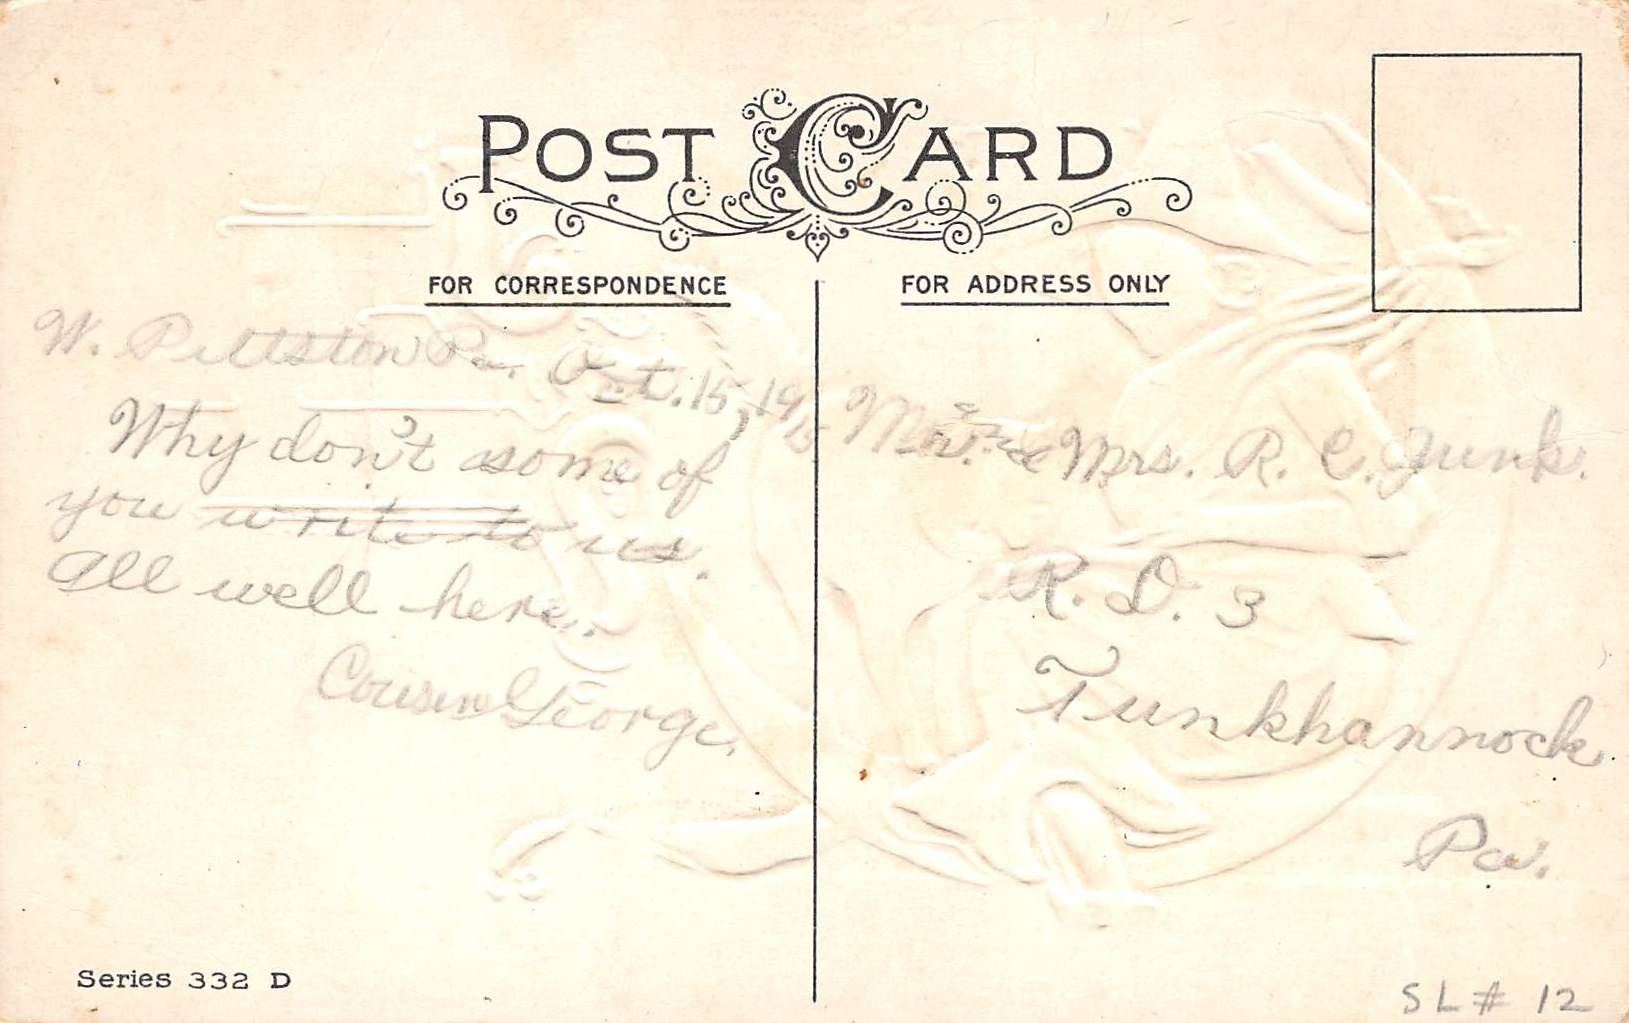 POST CARD
FOR CORRESPONDENCE
FOR ADDRESS ONLY
W. Pittston Pa. Oct. 15, 1915
Why don't some of
you write to us.
All well here.
Cousin George.
Mr. & Mrs. R. C. Junk.
R. D. 3
Tunkhannock
Pa.
Series 332 D
SL# 12